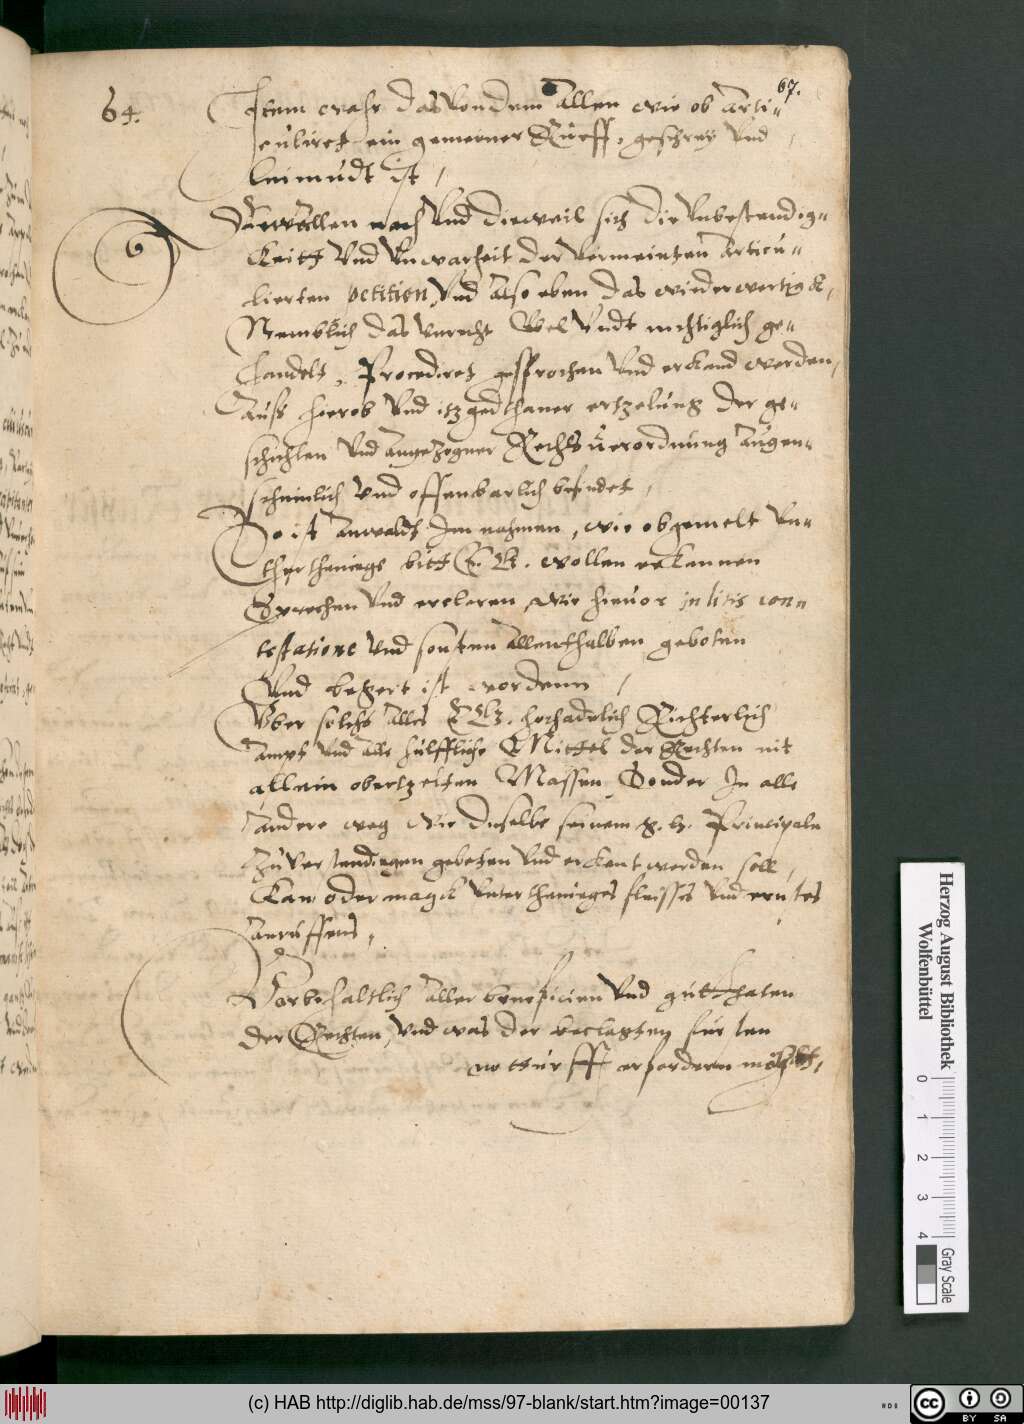 67.
64. Item wahr das von dem allen wie ob arti-
culiret ein gemeiner Rueff, geschrey vnd
leimudt ist,
Dieweillen nach vnd dieweil sich die vnbestendig-
keitt vnd vnwarheit der vermeinten articu-
lierten petition, vnd also eben das wiederwertig
Nemblich das vnrecht vbel vndt nichtiglich ge-
handelt, Procediret gesprochen vnd erckand worden,
auß hierob vnd itzgedthaner ertzelung der ge-
schichten vnd angezogner Rechts verordnung augen-
scheinlich vnd offenbarlich befindet,
So ist anwaldts Im nahmen, wie obgemelt vn-
therthenigs bitt E. G. wollen erkennen
Sprechen vnd ercleren, wie hieuor in litis con-
testatione vnd sonsten allenthalben gebeten
vnd begert ist worden
Vber solchs alles hochadelich Richterlich
ampt vnd alle hülffliche Mittel der Rechten nit
allein obertzelten Massen Sonder In alle
andere weg wie dieselbe seinem g. h. Principaln
zu verstendigen gebeten vnd erckent werden soll,
kan oder magk vnterthenigs fleisses vnd ernstes
anruffens,
Vorbehaltlich aller beneficien vnd gutthaten
der Rechten, vnd was der beclagten fürstn
notturfft erfordern möcht,
Herzog August Bibliothek
Wolfenbüttel
0 1 2 3 4
Gray Scale
(c) HAB http://diglib.hab.de/mss/97-blank/start.htm?image=00137
cc BY SA